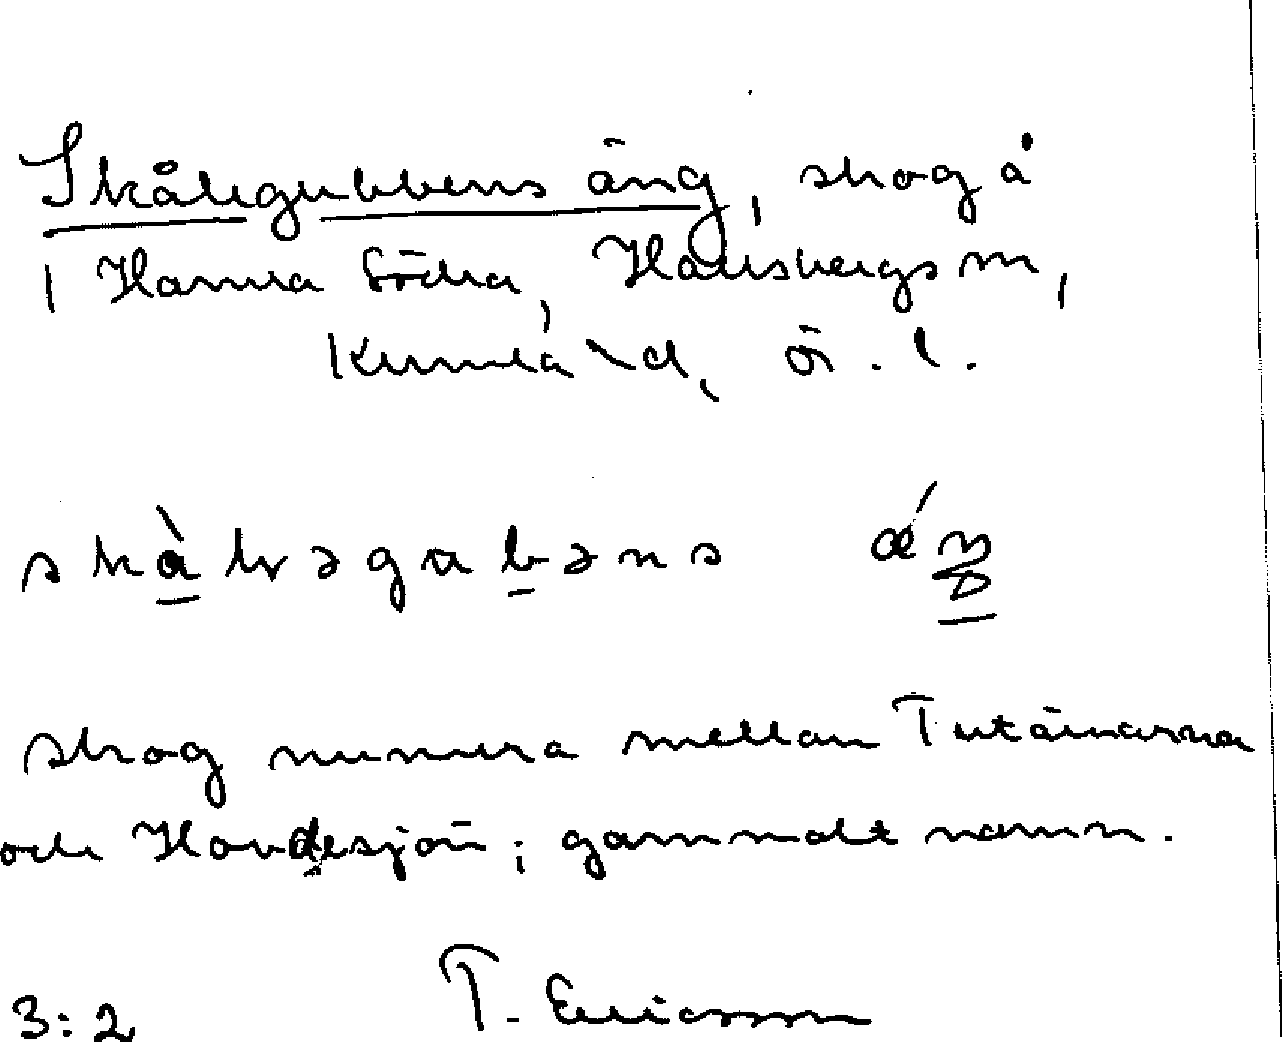 Skålegubbens äng, skog å
1 Hamra Södra, Hallsbergs sn,
Kumla hd, ö. l.
skog numera mellan Tutåsarna
och Hovdesjön; gammalt namn.
3:2 T. Ericsson